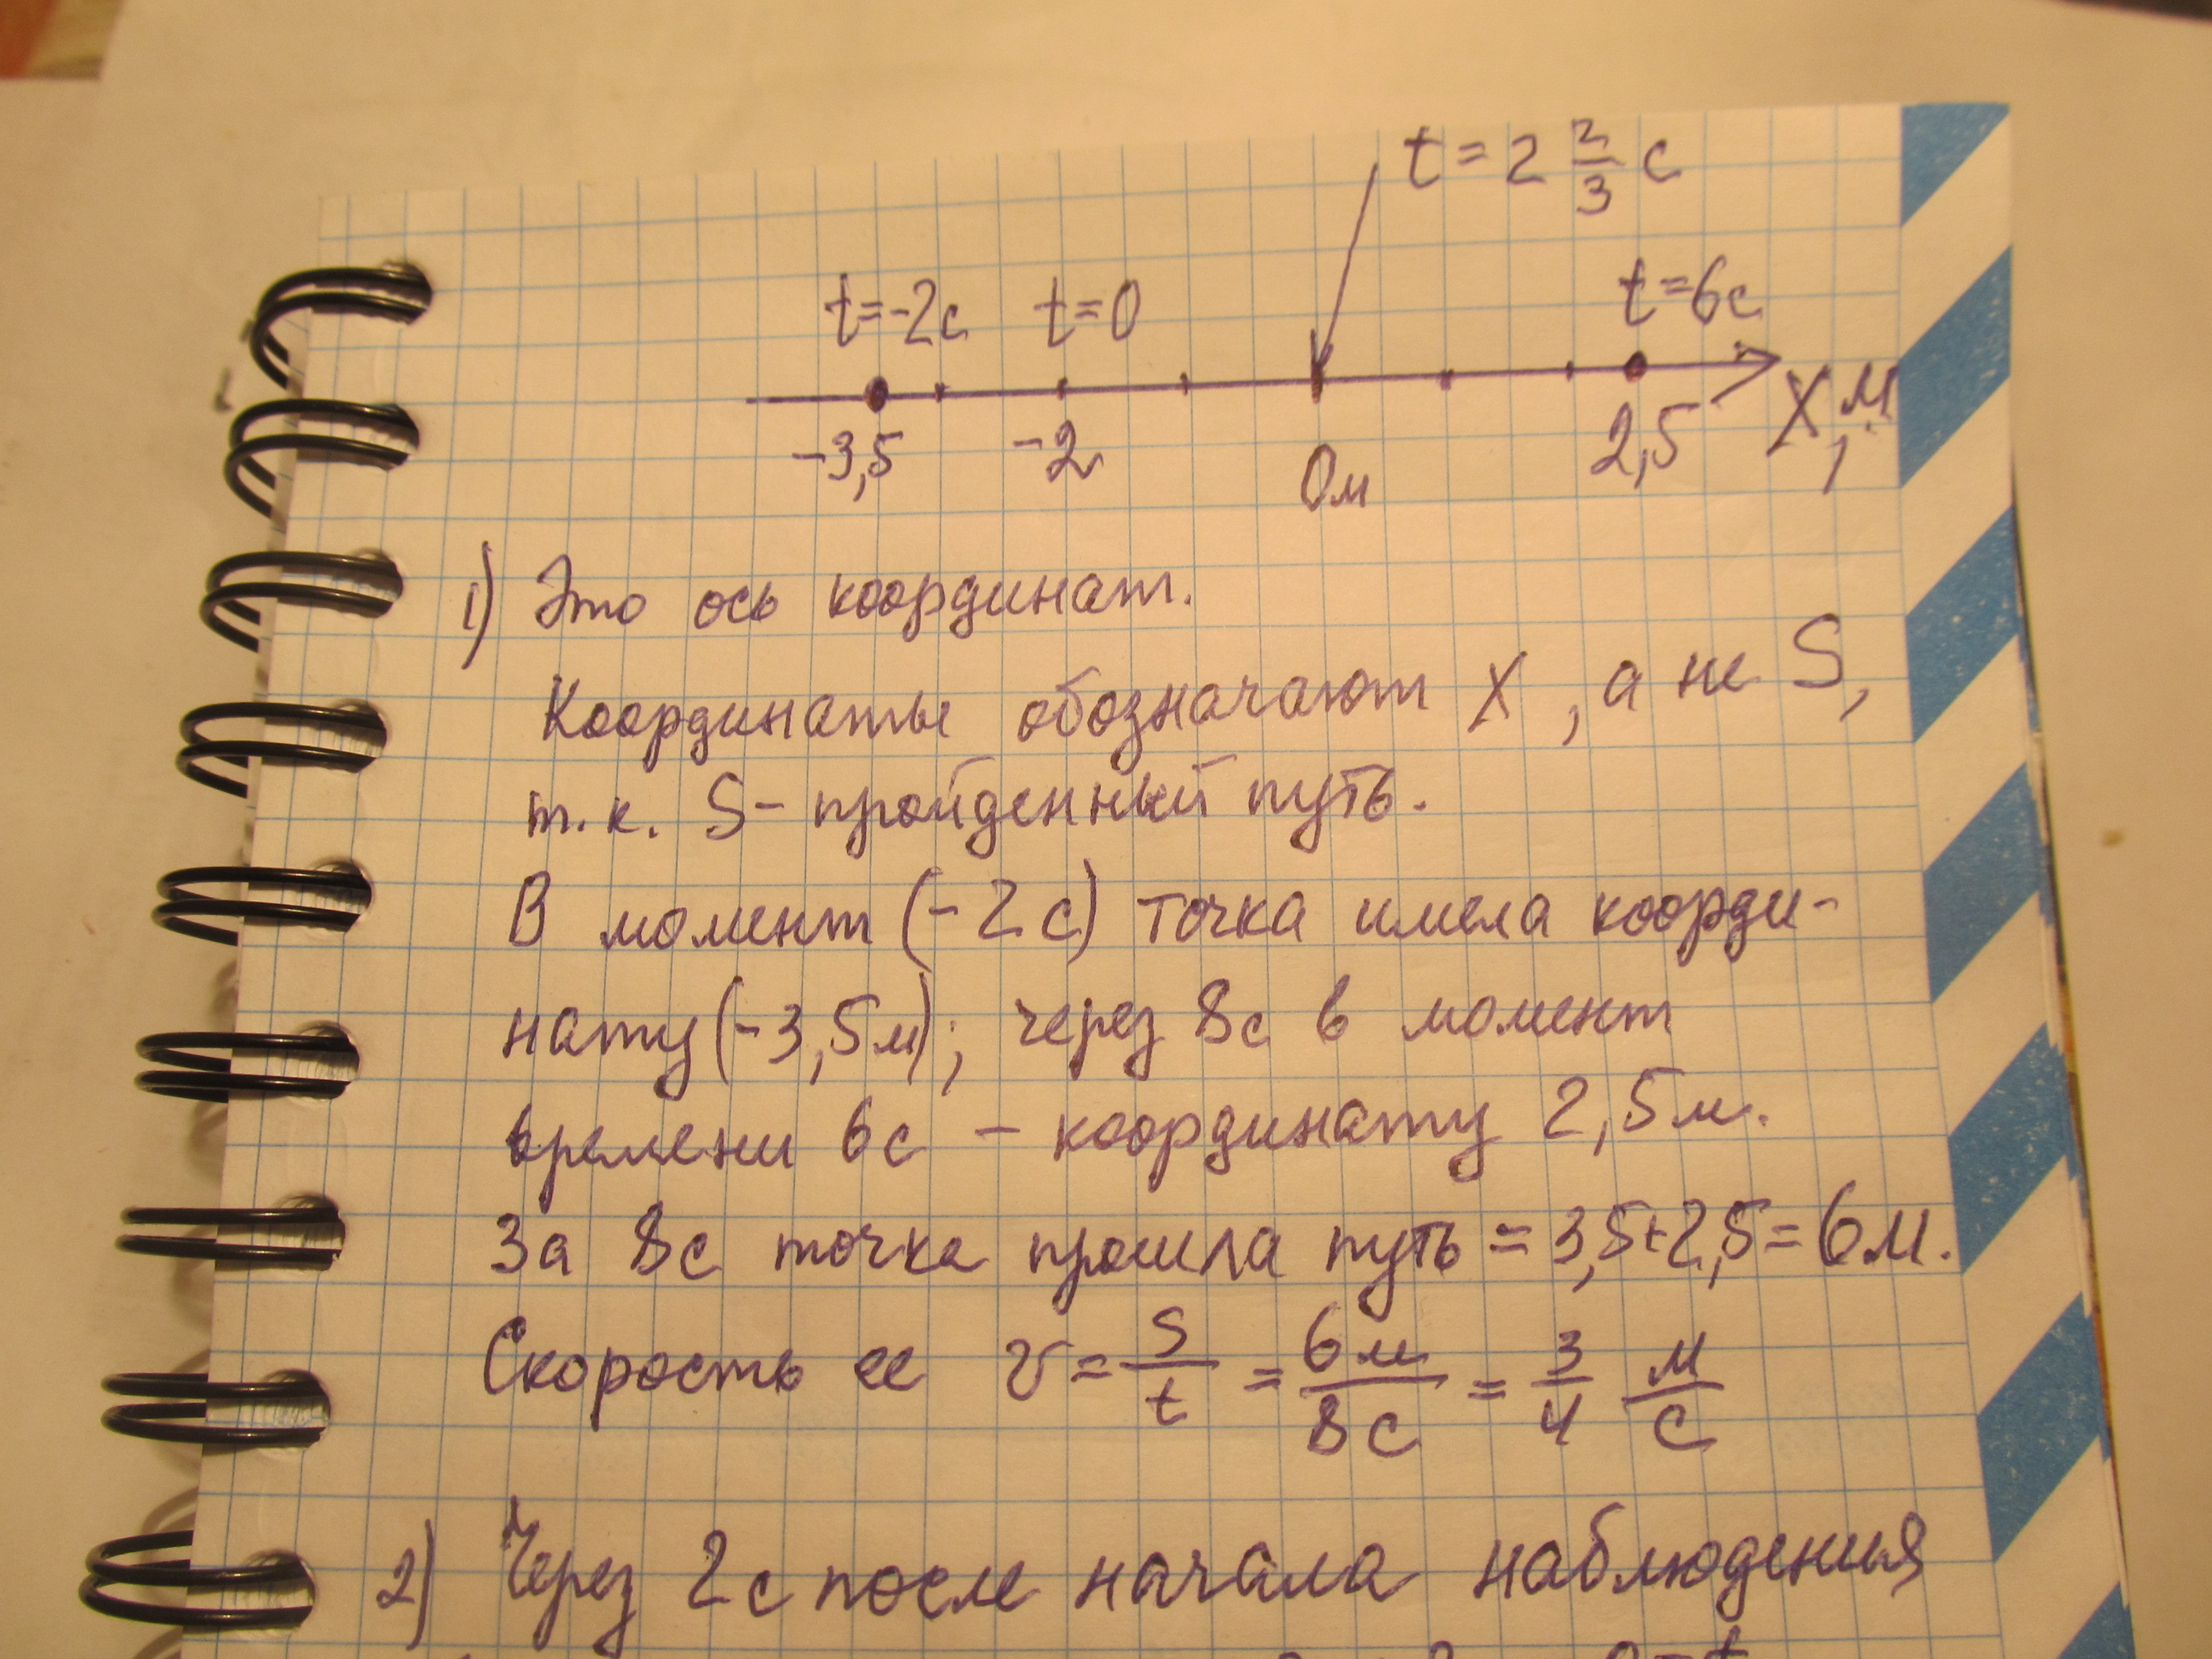 t = 2 2/3 с
t=-2с t=0 t=6с
-3,5 -2 0м 2,5 X, м
1) Это ось координат.
Координаты обозначают X, а не S,
т.к. S- пройденный путь.
В момент (-2с) точка имела коорди-
нату (-3,5м); через 8с в момент
времени 6с - координату 2,5м.
За 8с точка прошла путь = 3,5+2,5=6м.
Скорость ее v = S/t = 6м/8с = 3/4 м/с
2) Через 2с после начала наблюдения